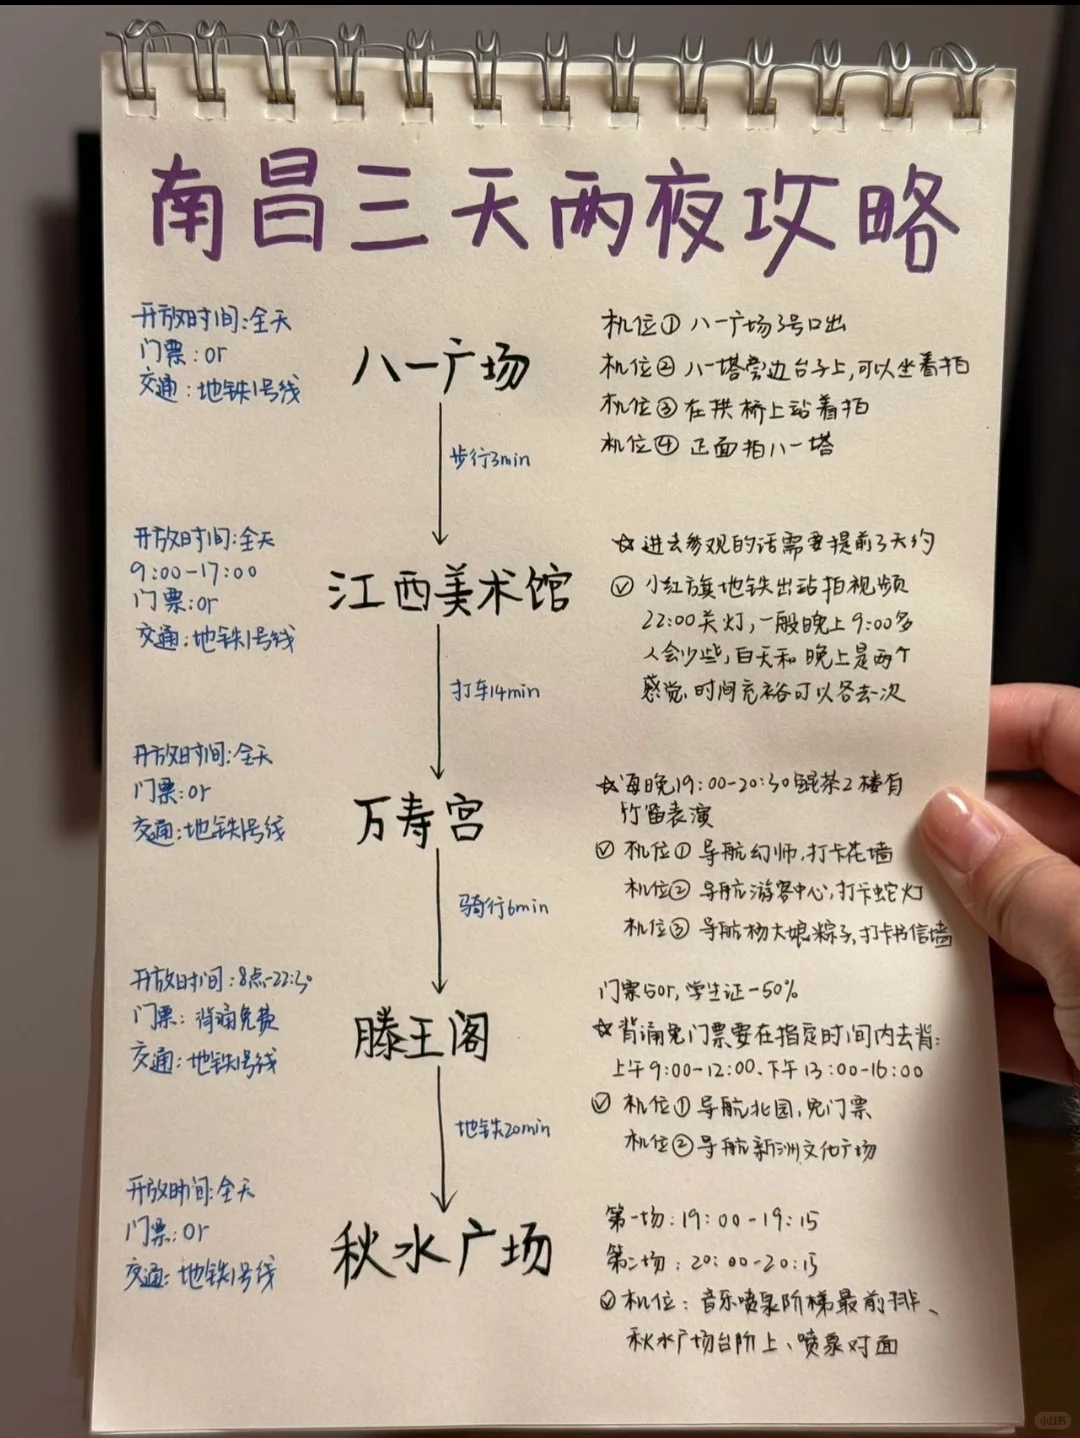 南昌三天两夜攻略
开放时间:全天
门票:0r
交通:地铁1号线
八一广场
机位① 八一广场3号口出
机位② 八一塔旁边台子上,可以坐着拍
机位③ 在拱桥上站着拍
机位④ 正面拍八一塔
步行3min
开放时间:全天
9:00-17:00
门票:0r
交通:地铁1号线
江西美术馆
☆ 进去参观的话需要提前3天约
小红旗地铁出站拍视频
22:00关灯,一般晚上9:00多
人会少些,白天和晚上是两个
感觉,时间充裕可以各去一次
打车14min
开放时间:全天
门票:0r
交通:地铁1号线
万寿宫
☆ 每晚19:00-20:30 茶2楼有
表演
机位① 导航幻师,打卡花墙
机位② 导航游客中心,打卡蛇灯
机位③ 导航杨大娘粽子,打卡书信墙
骑行6min
开放时间:8点-22:30
门票:背诵免费
交通:地铁1号线
滕王阁
门票50r,学生证-50%
☆ 背诵免门票要在指定时间内去背:
上午9:00-12:00、下午13:00-16:00
机位① 导航北园,免门票
机位② 导航新洲文化广场
地铁20min
开放时间:全天
门票:0r
交通:地铁1号线
秋水广场
第一场:19:00-19:15
第二场:20:00-20:15
机位:音乐喷泉阶梯最前排、
秋水广场台阶上、喷泉对面
小红书